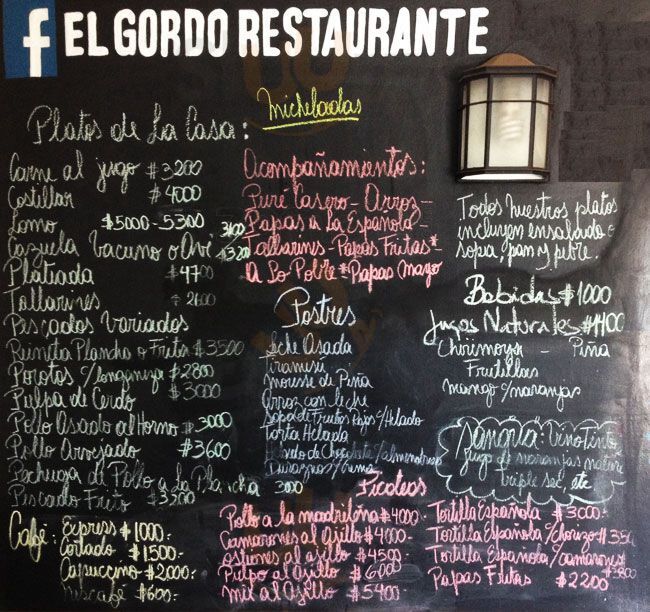 f EL GORDO RESTAURANTE
Micheladas
Platos de La Casa:
Carne al jugo $3200
Costillar $4000
Lomo $5000-5300
Cazuela Vacuno o Ave 3100 $3200
Plateada $4700
Tallarines 2600
Pescados Variados
Reineta Plancha o Frita $3500
Porotos c/longaniza $2800
Pulpa de Cerdo $3000
Pollo Asado al Horno $3000
Pollo Arvejado $3600
Pechuga de Pollo a la Plancha 3000
Pescado Frito $3200
Café: Express $1000.-
Cortado $1500.-
Capuccino $2000.-
Nescafé $600.-
Acompañamientos:
Puré Casero - Arroz -
Papas a La Española -
Tallarins - Papas Fritas *
A Lo Pobre * Papas Mayo
Postres
Leche Asada
Tiramisú
Mousse de Piña
Arroz con leche
Sopa de Frutos Rojos c/Helado
Torta Helada
Helado de Chocolate c/almendras
Duraznos c/Crema
Todos Nuestros platos
incluyen ensalada o
sopa, pan y pebre.
Bebidas $1000
Jugos Naturales $1400
Chirimoya - Piña
Frutillas
mango c/naranjas
Sangria: Vino Tinto
jugo de naranjas
triple sec, etc
Picoteos
Pollo a la madrileña $4000-
Camarones al Ajillo $4000-
Ostiones al ajillo $4500-
Pulpo al Ajillo $6000
Mix al Ajillo $5400
Tortilla Española $3000-
Tortilla Española c/Chorizo
Tortilla Española c/camarones $3800
Papas Fritas $2200